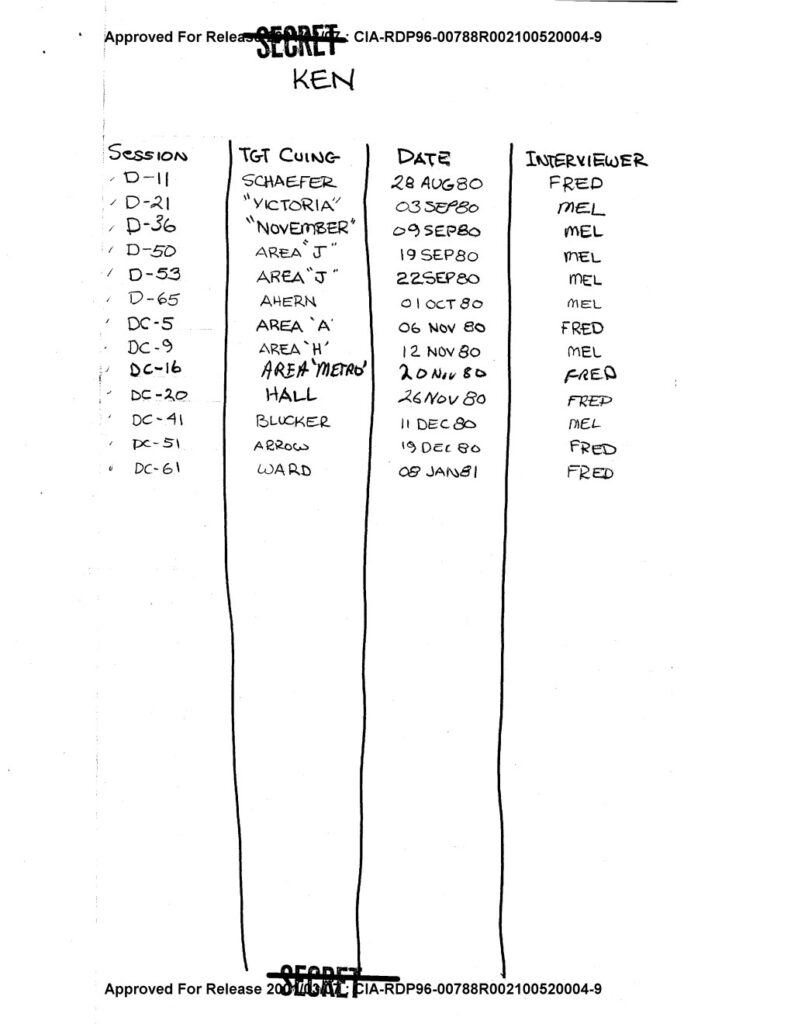 Approved For Release 2001/03/07 : CIA-RDP96-00788R002100520004-9
SECRET
KEN
SESSION TGT CUING DATE INTERVIEWER
D-11 SCHAEFER 28 AUG 80 FRED
D-21 "VICTORIA" 03 SEP 80 MEL
D-36 "NOVEMBER" 09 SEP 80 MEL
D-50 AREA "J" 19 SEP 80 MEL
D-53 AREA "J" 22 SEP 80 MEL
D-65 AHERN 01 OCT 80 MEL
DC-5 AREA 'A' 06 NOV 80 FRED
DC-9 AREA 'H' 12 NOV 80 MEL
DC-16 AREA 'METRO' 20 NOV 80 FRED
DC-20 HALL 26 NOV 80 FRED
DC-41 BLUCKER 11 DEC 80 MEL
DC-51 ARROW 19 DEC 80 FRED
DC-61 WARD 08 JAN 81 FRED
SECRET
Approved For Release 2001/03/07 : CIA-RDP96-00788R002100520004-9